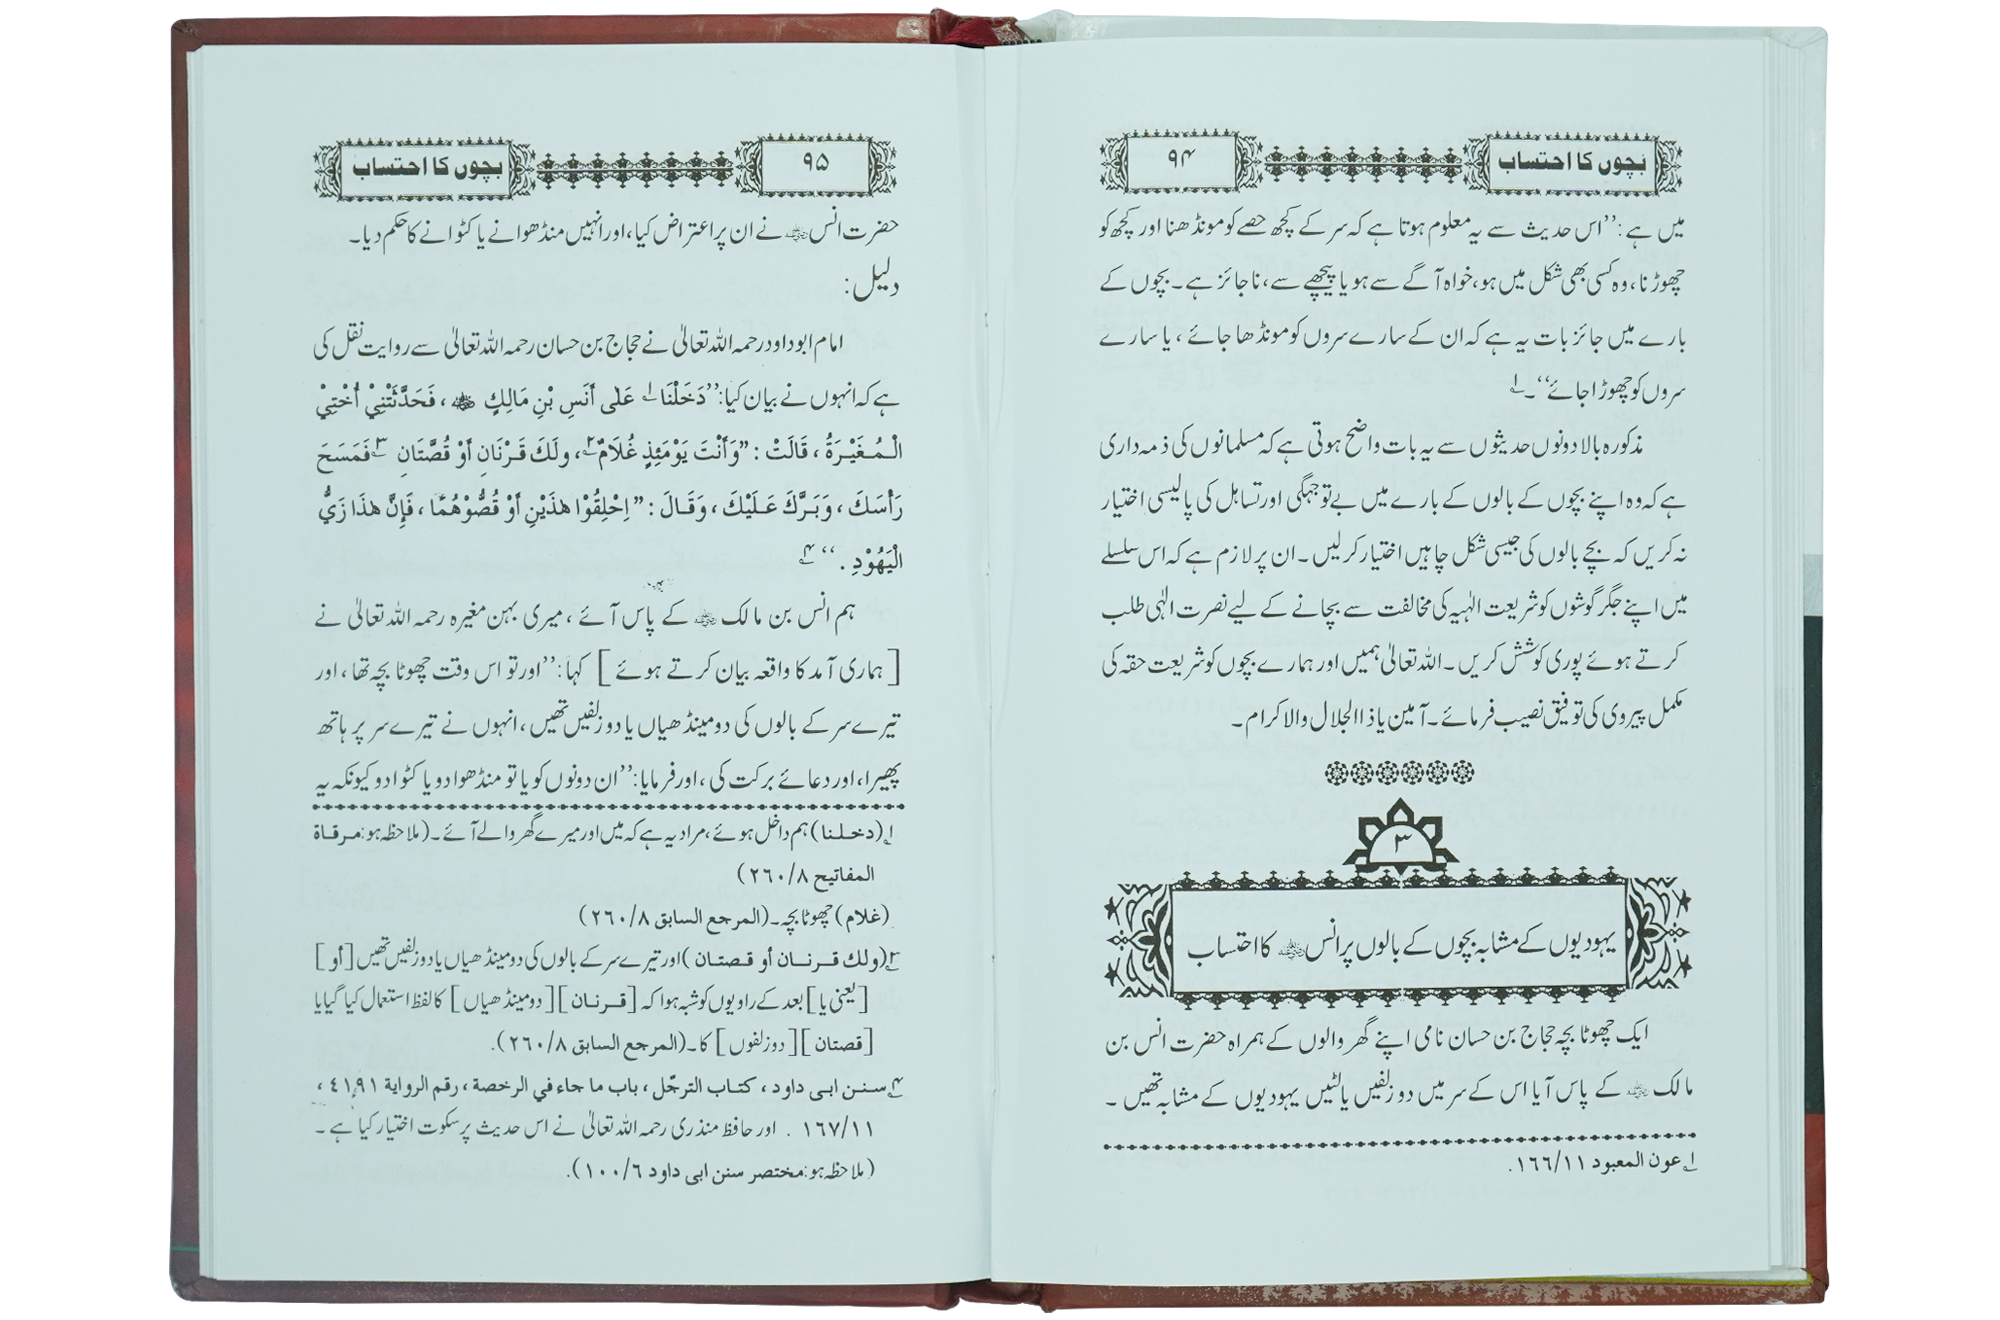 بچوں کا احتساب
۹۴
میں ہے: ’’اس حدیث سے یہ معلوم ہوتا ہے کہ سر کے کچھ حصے کو مونڈھنا اور کچھ کو
چھوڑنا، وہ کسی بھی شکل میں ہو، خواہ آگے سے ہو یا پیچھے سے، ناجائز ہے۔ بچوں کے
بارے میں جائز بات یہ ہے کہ ان کے سارے سروں کو مونڈھا جائے، یا سارے
سروں کو چھوڑا جائے‘‘۔ ۱؎
مذکورہ بالا دونوں حدیثوں سے یہ بات واضح ہوتی ہے کہ مسلمانوں کی ذمہ داری
ہے کہ وہ اپنے بچوں کے بالوں کے بارے میں بے توجہگی اور تساہل کی پالیسی اختیار
نہ کریں کہ بچے بالوں کی جیسی شکل چاہیں اختیار کرلیں۔ ان پر لازم ہے کہ اس سلسلے
میں اپنے جگر گوشوں کو شریعت الٰہیہ کی مخالفت سے بچانے کے لیے نصرت الٰہی طلب
کرتے ہوئے پوری کوشش کریں۔ اللہ تعالیٰ ہمیں اور ہمارے بچوں کو شریعت حقہ کی
مکمل پیروی کی توفیق نصیب فرمائے۔ آمین یا ذا الجلال والاکرام۔
۳
یہودیوں کے مشابہ بچوں کے بالوں پر انس رضی اللہ عنہ کا احتساب
ایک چھوٹا بچہ حجاج بن حسان نامی اپنے گھر والوں کے ہمراہ حضرت انس بن
مالک رضی اللہ عنہ کے پاس آیا اس کے سر میں دو زلفیں یا لٹیں یہودیوں کے مشابہ تھیں۔
۱؎ عون المعبود ۱۶۶/۱۱.
۹۵
بچوں کا احتساب
حضرت انس رضی اللہ عنہ نے ان پر اعتراض کیا، اور انہیں منڈھوانے یا کٹوانے کا حکم دیا۔
دلیل:
امام ابوداود رحمہ اللہ تعالیٰ نے حجاج بن حسان رحمہ اللہ تعالیٰ سے روایت نقل کی
ہے کہ انہوں نے بیان کیا: ’’دَخَلْنَا ۱؎ عَلٰى أَنَسِ بْنِ مَالِكٍ رضی اللہ عنہ، فَحَدَّثَتْنِيْ أُخْتِيْ
الْمُغَيْرَةُ، قَالَتْ: ”وَأَنْتَ يَوْمَئِذٍ غُلَامٌ ۲؎، ولَكَ قَرْنَانِ أَوْ قُصَّتَانِ ۳؎ فَمَسَحَ
رَأْسَكَ، وَبَرَّكَ عَلَيْكَ، وَقَالَ: ”اِحْلِقُوْا هٰذَيْنِ أَوْ قُصُّوْهُمَا، فَإِنَّ هٰذَا زَيُّ
الْيَهُوْدِ.‘‘ ۴؎
ہم انس بن مالک رضی اللہ عنہ کے پاس آئے، میری بہن مغیرہ رحمہ اللہ تعالیٰ نے
[ہماری آمد کا واقعہ بیان کرتے ہوئے] کہا: ’’اور تو اس وقت چھوٹا بچہ تھا، اور
تیرے سر کے بالوں کی دو مینڈھیاں یا دو زلفیں تھیں، انہوں نے تیرے سر پر ہاتھ
پھیرا، اور دعائے برکت کی، اور فرمایا: ’’ان دونوں کو یا تو منڈھوا دو یا کٹوا دو کیونکہ یہ
۱؎ (دخلنا) ہم داخل ہوئے، مراد یہ ہے کہ میں اور میرے گھر والے آئے۔ (ملاحظہ ہو: مرقاة
المفاتیح ۲۶۰/۸)
(غلام) چھوٹا بچہ۔ (المرجع السابق ۲۶۰/۸)
۳؎ (ولك قرنان أو قصتان) اور تیرے سر کے بالوں کی دو مینڈھیاں یا دو زلفیں تھیں [أو]
[یعنی یا] بعد کے راویوں کو شبہ ہوا کہ [قرنان] [دو مینڈھیاں] کا لفظ استعمال کیا گیا یا
[قصتان] [دو زلفوں] کا۔ (المرجع السابق ۲۶۰/۸).
۴؎ سنن ابی داود، كتاب الترجّل، باب ما جاء في الرخصة، رقم الرواية ٤١٩١،
۱۶۷/۱۱ . اور حافظ منذری رحمہ اللہ تعالیٰ نے اس حدیث پر سکوت اختیار کیا ہے۔
(ملاحظہ ہو: مختصر سنن ابی داود ۱۰۰/۶).